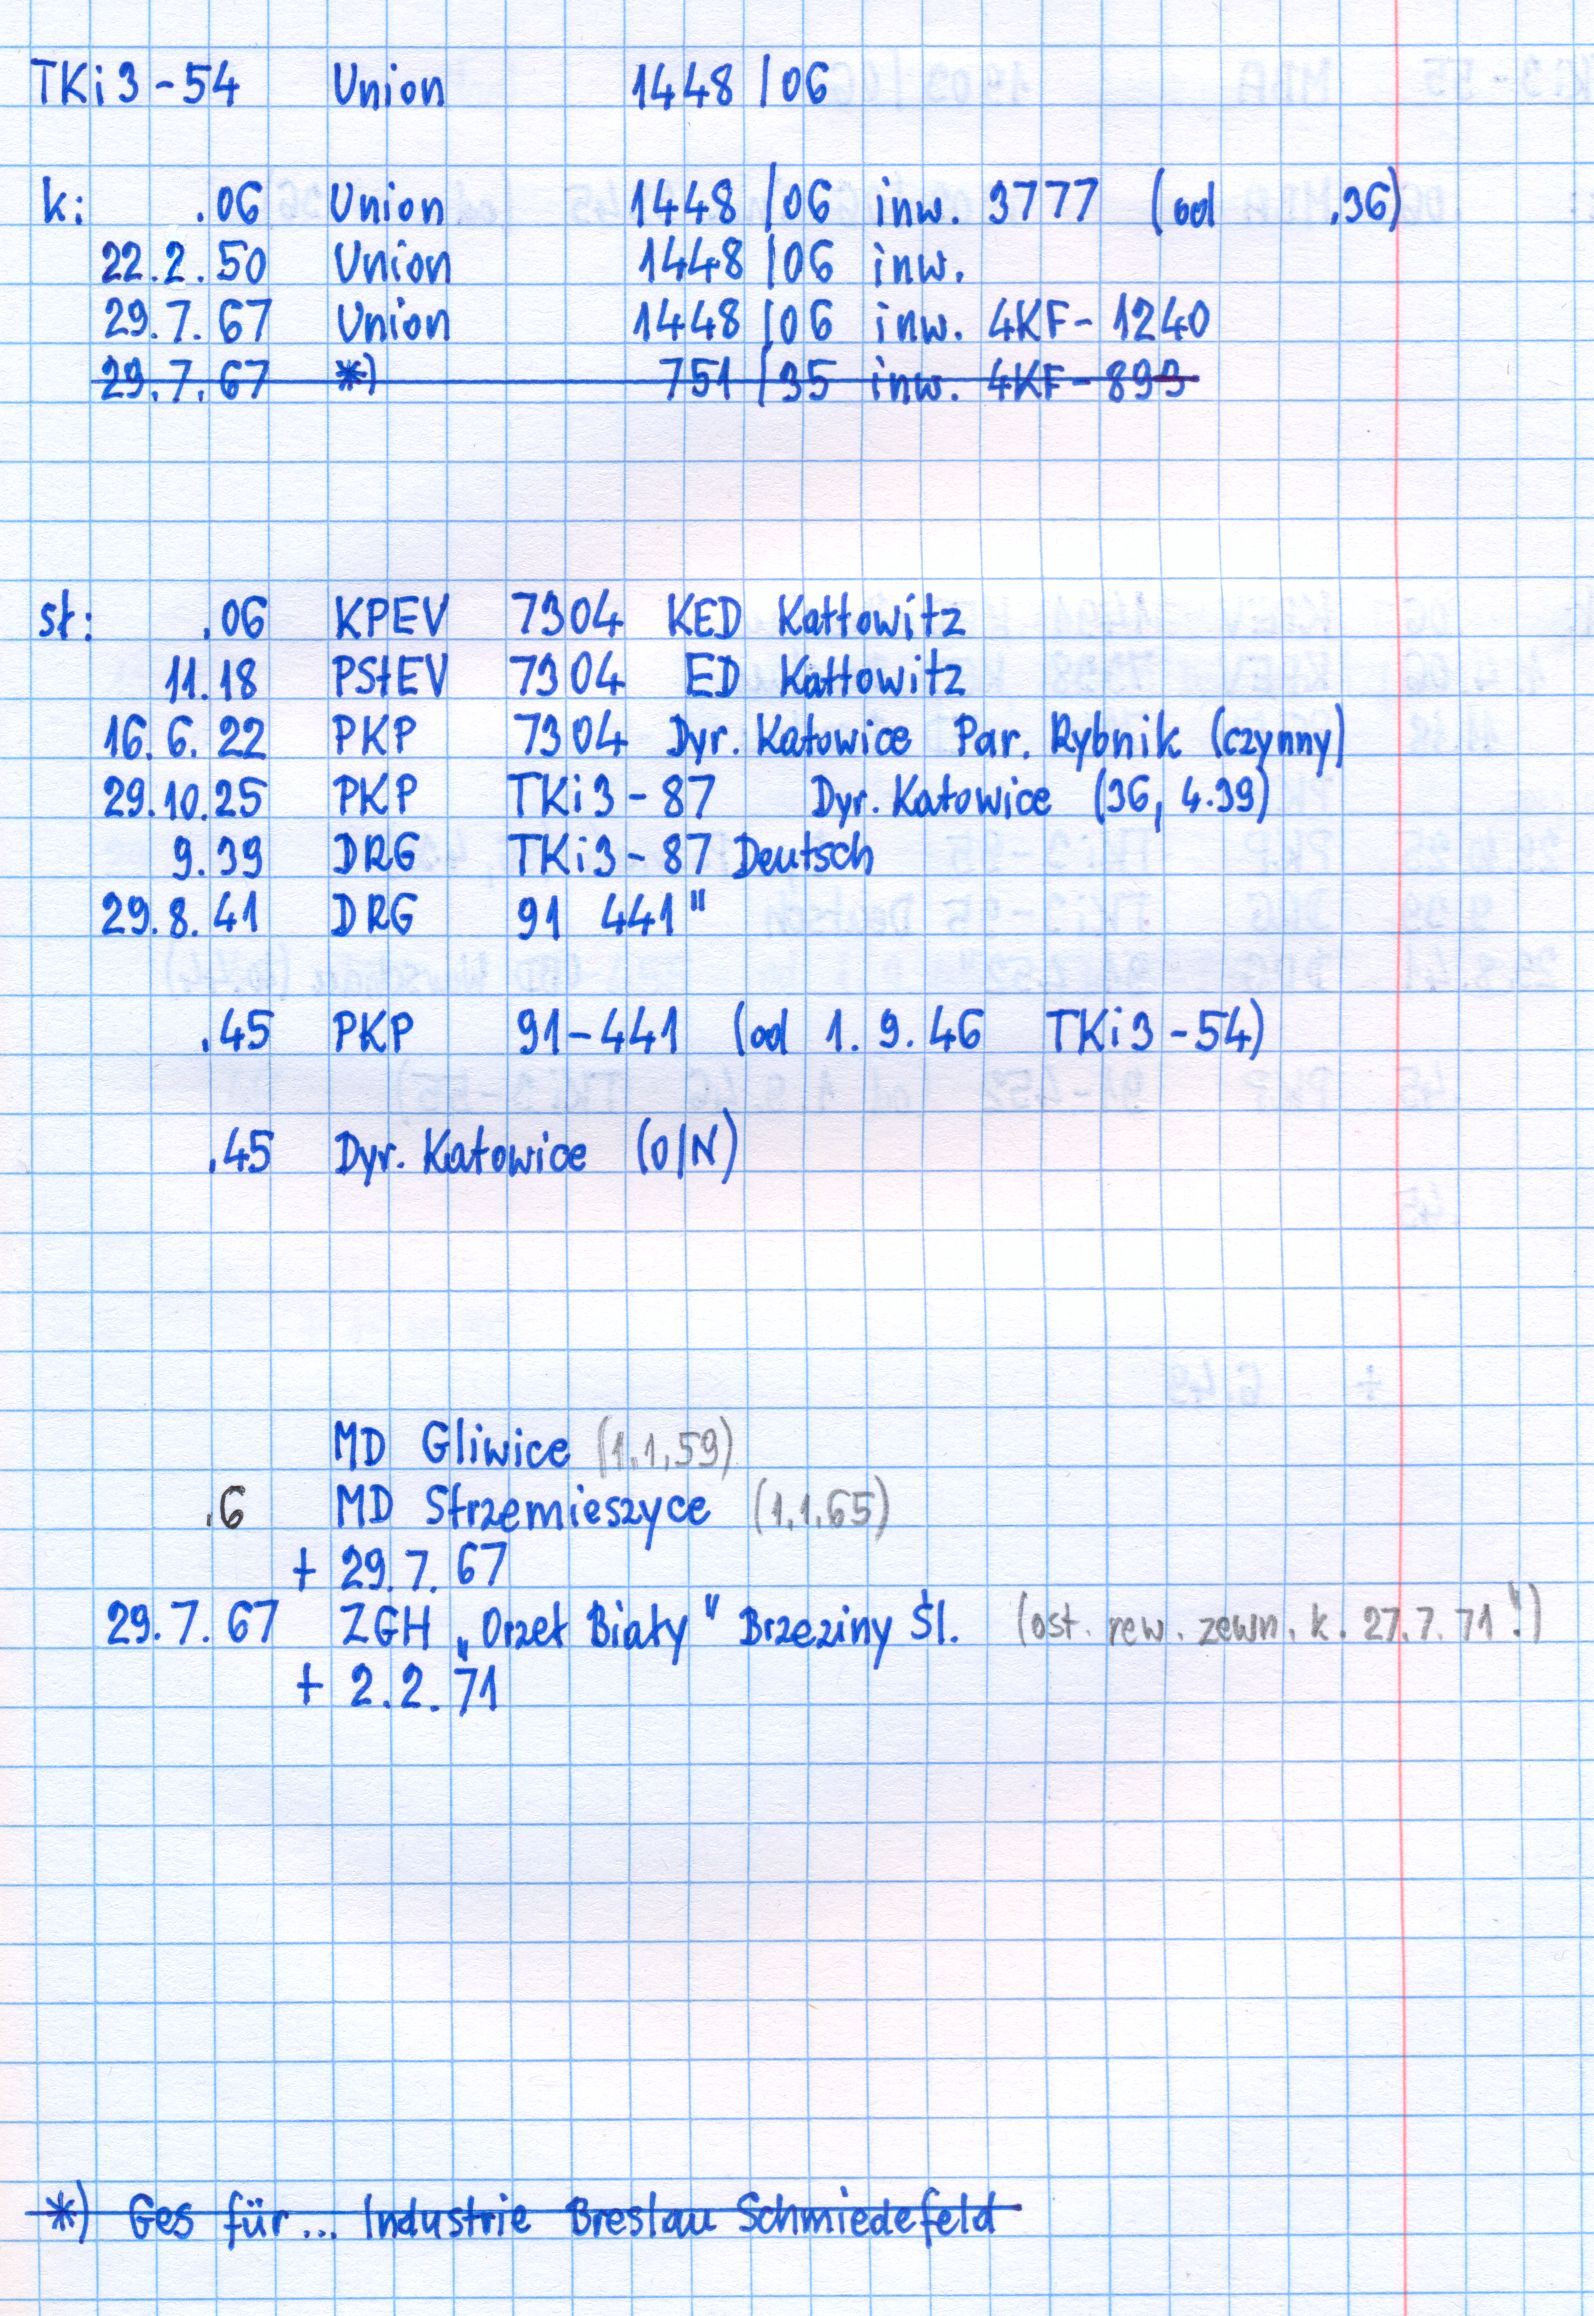 TKi3-54 Union 1448/06
k: .06 Union 1448/06 inw. 3777 (od .36)
22.2.50 Union 1448/06 inw.
29.7.67 Union 1448/06 inw. 4KF-1240
29.7.67 *) 751/35 inw. 4KF-893
sł: .06 KPEV 7304 KED Kattowitz
11.18 PStEV 7304 ED Kattowitz
16.6.22 PKP 7304 Dyr. Katowice Par. Rybnik (czynny)
29.10.25 PKP TKi3-87 Dyr. Katowice (36, 4.39)
9.39 DRG TKi3-87 Deutsch
29.8.41 DRG 91 441"
.45 PKP 91-441 (od 1.9.46 TKi3-54)
.45 Dyr. Katowice (O/N)
MD Gliwice (1.1.59)
.6 MD Strzemieszyce (1.1.65)
+ 29.7.67
29.7.67 ZGH „Orzeł Biały" Brzeziny Śl. (ost. rew. zewn. k. 27.7.71"!)
+ 2.2.71
*) Ges für... Industrie Breslau Schmiedefeld